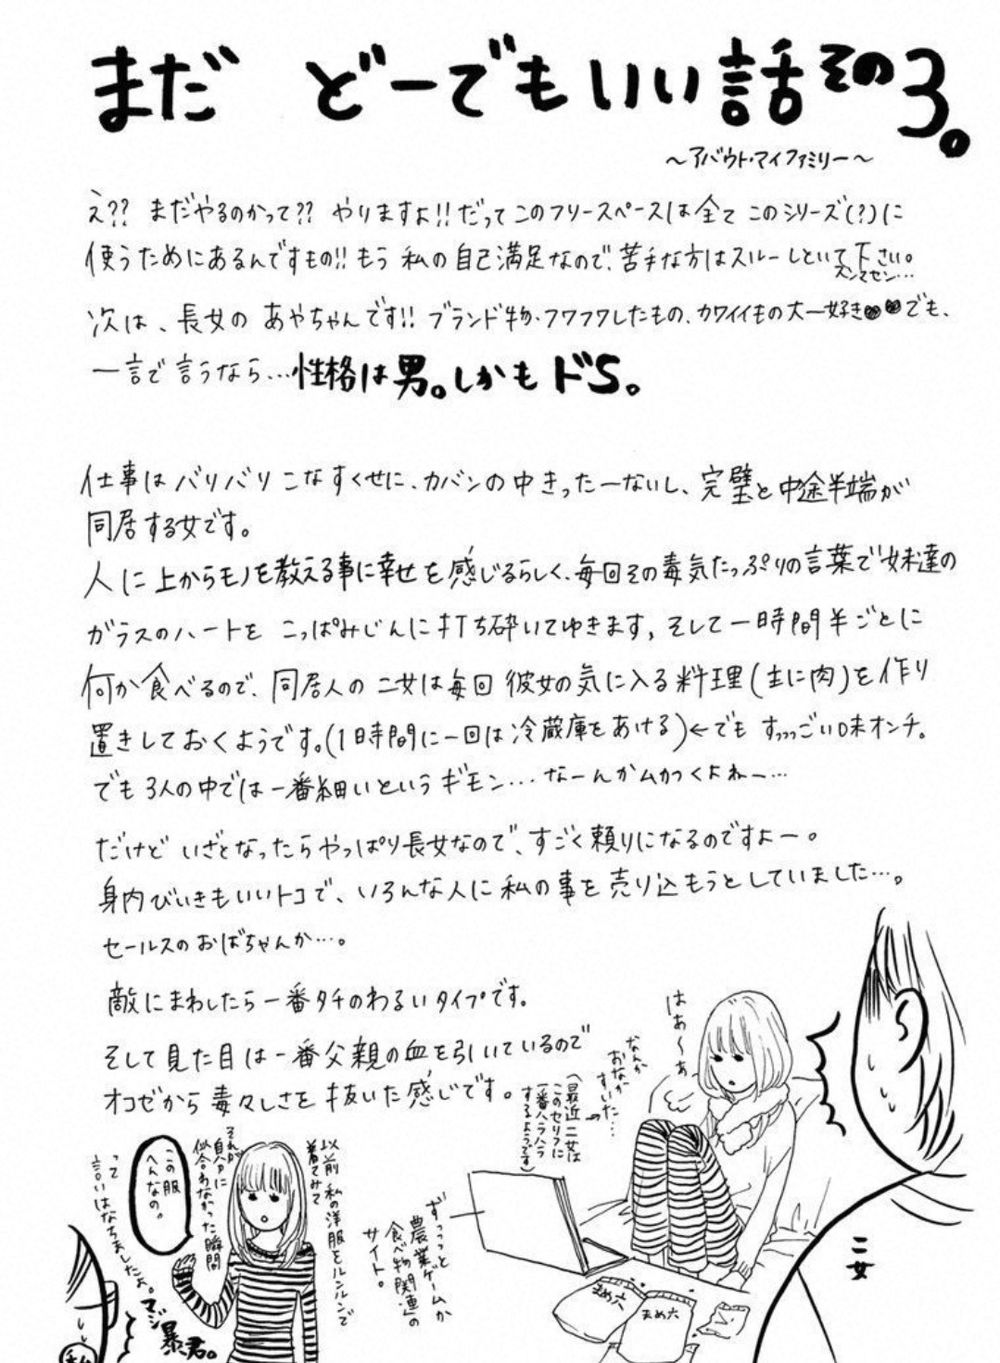 まだ どーでもいい話その3。
～アバウト・マイファミリー～
え?? まだやるのかって?? やりますよ!!だってこのフリースペースは全てこのシリーズ(?)に
使うためにあるんですもの!!もう私の自己満足なので、苦手な方はスルーしといて下さい。
スンマセン…
次は、長女の あやちゃんです!! ブランド物・フワフワしたもの、カワイイもの大ー好き♥♥でも、
一言で言うなら…性格は男。しかもドS。
仕事はバリバリこなすくせに、カバンの中きったーないし、完璧と中途半端が
同居する女です。
人に上からモノを教える事に幸せを感じるらしく、毎回その毒気たっぷりの言葉で妹達の
ガラスのハートを こっぱみじんに打ち砕いてゆきます。そして一時間半ごとに
何か食べるので、同居人の二女は毎回彼女の気に入る料理(主に肉)を作り
置きしておくようです。(1時間に一回は冷蔵庫をあける)←でも すっっっごい味オンチ。
でも3人の中では一番細いというギモン…なーんかムカつくよねー…
だけど いざとなったらやっぱり長女なので、すごく頼りになるのですよー。
身内びいきもいいトコで、いろんな人に私の事を売り込もうとしていました…。
セールスのおばちゃんか…。
敵にまわしたら一番タチのわるいタイプです。
そして見た目は一番父親の血を引いているので
オコゼから毒々しさを抜いた感じです。
はあ～ぁ
なんか
おなか
すいた…
(最近二女は
このセリフに
一番ハラハラ
するようです)
ずっっっと
農業ゲームか
食べ物関連の
サイト。
まめ六
まめ六
二女
以前私の洋服をルンルンで
着てみて
それが
自分に
似合わなかった瞬間
この服
へんなの。
って
言いはなちましたよ。マジ
暴君。
私